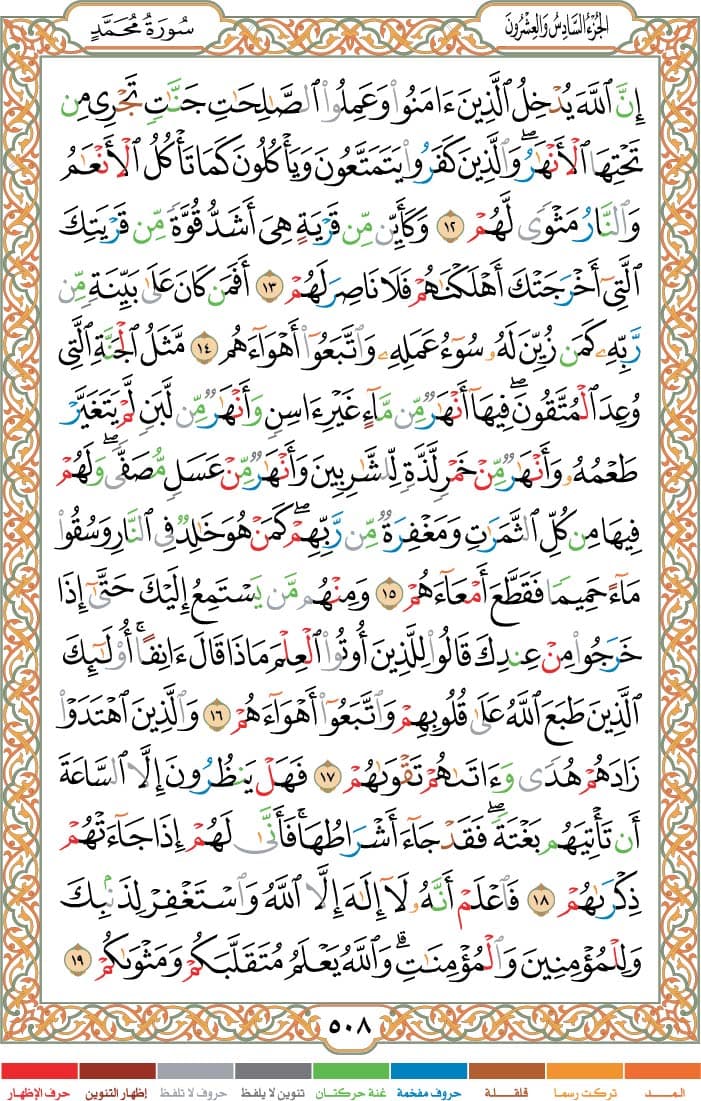 الجزء السادس والعشرون
سورة محمد
إِنَّ ٱللَّهَ يُدْخِلُ ٱلَّذِينَ ءَامَنُوا۟ وَعَمِلُوا۟ ٱلصَّٰلِحَٰتِ جَنَّٰتٍ تَجْرِى مِن
تَحْتِهَا ٱلْأَنْهَٰرُ ۖ وَٱلَّذِينَ كَفَرُوا۟ يَتَمَتَّعُونَ وَيَأْكُلُونَ كَمَا تَأْكُلُ ٱلْأَنْعَٰمُ
وَٱلنَّارُ مَثْوًى لَّهُمْ ١٢ وَكَأَيِّن مِّن قَرْيَةٍ هِىَ أَشَدُّ قُوَّةً مِّن قَرْيَتِكَ
ٱلَّتِىٓ أَخْرَجَتْكَ أَهْلَكْنَٰهُمْ فَلَا نَاصِرَ لَهُمْ ١٣ أَفَمَن كَانَ عَلَىٰ بَيِّنَةٍ مِّن
رَّبِّهِۦ كَمَن زُيِّنَ لَهُۥ سُوٓءُ عَمَلِهِۦ وَٱتَّبَعُوٓا۟ أَهْوَآءَهُم ١٤ مَّثَلُ ٱلْجَنَّةِ ٱلَّتِى
وُعِدَ ٱلْمُتَّقُونَ ۖ فِيهَآ أَنْهَٰرٌ مِّن مَّآءٍ غَيْرِ ءَاسِنٍ وَأَنْهَٰرٌ مِّن لَّبَنٍ لَّمْ يَتَغَيَّرْ
طَعْمُهُۥ وَأَنْهَٰرٌ مِّنْ خَمْرٍ لَّذَّةٍ لِّلشَّٰرِبِينَ وَأَنْهَٰرٌ مِّنْ عَسَلٍ مُّصَفًّى ۖ وَلَهُمْ
فِيهَا مِن كُلِّ ٱلثَّمَرَٰتِ وَمَغْفِرَةٌ مِّن رَّبِّهِمْ ۖ كَمَنْ هُوَ خَٰلِدٌ فِى ٱلنَّارِ وَسُقُوا۟
مَآءً حَمِيمًا فَقَطَّعَ أَمْعَآءَهُمْ ١٥ وَمِنْهُم مَّن يَسْتَمِعُ إِلَيْكَ حَتَّىٰٓ إِذَا
خَرَجُوا۟ مِنْ عِندِكَ قَالُوا۟ لِلَّذِينَ أُوتُوا۟ ٱلْعِلْمَ مَاذَا قَالَ ءَانِفًا ۚ أُو۟لَٰٓئِكَ
ٱلَّذِينَ طَبَعَ ٱللَّهُ عَلَىٰ قُلُوبِهِمْ وَٱتَّبَعُوٓا۟ أَهْوَآءَهُمْ ١٦ وَٱلَّذِينَ ٱهْتَدَوْا۟
زَادَهُمْ هُدًى وَءَاتَىٰهُمْ تَقْوَىٰهُمْ ١٧ فَهَلْ يَنظُرُونَ إِلَّا ٱلسَّاعَةَ
أَن تَأْتِيَهُم بَغْتَةً ۖ فَقَدْ جَآءَ أَشْرَاطُهَا ۚ فَأَنَّىٰ لَهُمْ إِذَا جَآءَتْهُمْ
ذِكْرَىٰهُمْ ١٨ فَٱعْلَمْ أَنَّهُۥ لَآ إِلَٰهَ إِلَّا ٱللَّهُ وَٱسْتَغْفِرْ لِذَنۢبِكَ
وَلِلْمُؤْمِنِينَ وَٱلْمُؤْمِنَٰتِ ۗ وَٱللَّهُ يَعْلَمُ مُتَقَلَّبَكُمْ وَمَثْوَىٰكُمْ ١٩
٥٠٨
المـــد تركت رسما قلقـــلة حروف مفخمة غنة حركتان تنوين لا يلفظ حروف لا تلفظ إظهار التنوين حرف الإظهار